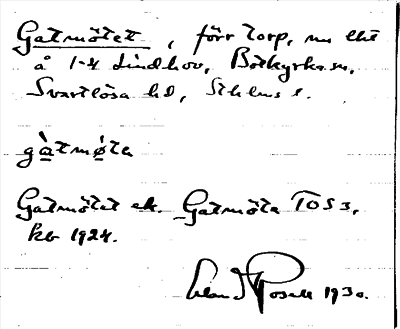 Gatmötet, förr torp, nu lht
å 1-4 Lindhov, Botkyrka sn,
Svartlösa hd, Sthlms l.
gàtmø̀ta
Gatmötet ek. Gatmöta TOS 3,
kb 1924.
Erland Rosell 1930.